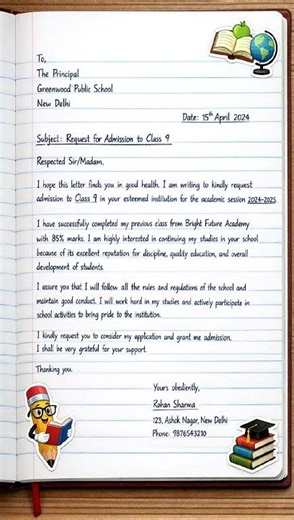 To,
The Principal
Greenwood Public School
New Delhi
Date: 15th April 2024
Subject: Request for Admission to Class 9
Respected Sir/Madam,
I hope this letter finds you in good health. I am writing to kindly request
admission to Class 9 in your esteemed institution for the academic session 2024-2025.
I have successfully completed my previous class from Bright Future Academy
with 85% marks. I am highly interested in continuing my studies in your school
because of its excellent reputation for discipline, quality education, and overall
development of students.
I assure you that I will follow all the rules and regulations of the school and
maintain good conduct. I will work hard in my studies and actively participate in
school activities to bring pride to the institution.
I kindly request you to consider my application and grant me admission.
I shall be very grateful for your support.
Thanking you.
Yours obediently,
Rohan Sharma
123, Ashok Nagar, New Delhi
Phone: 9876543210